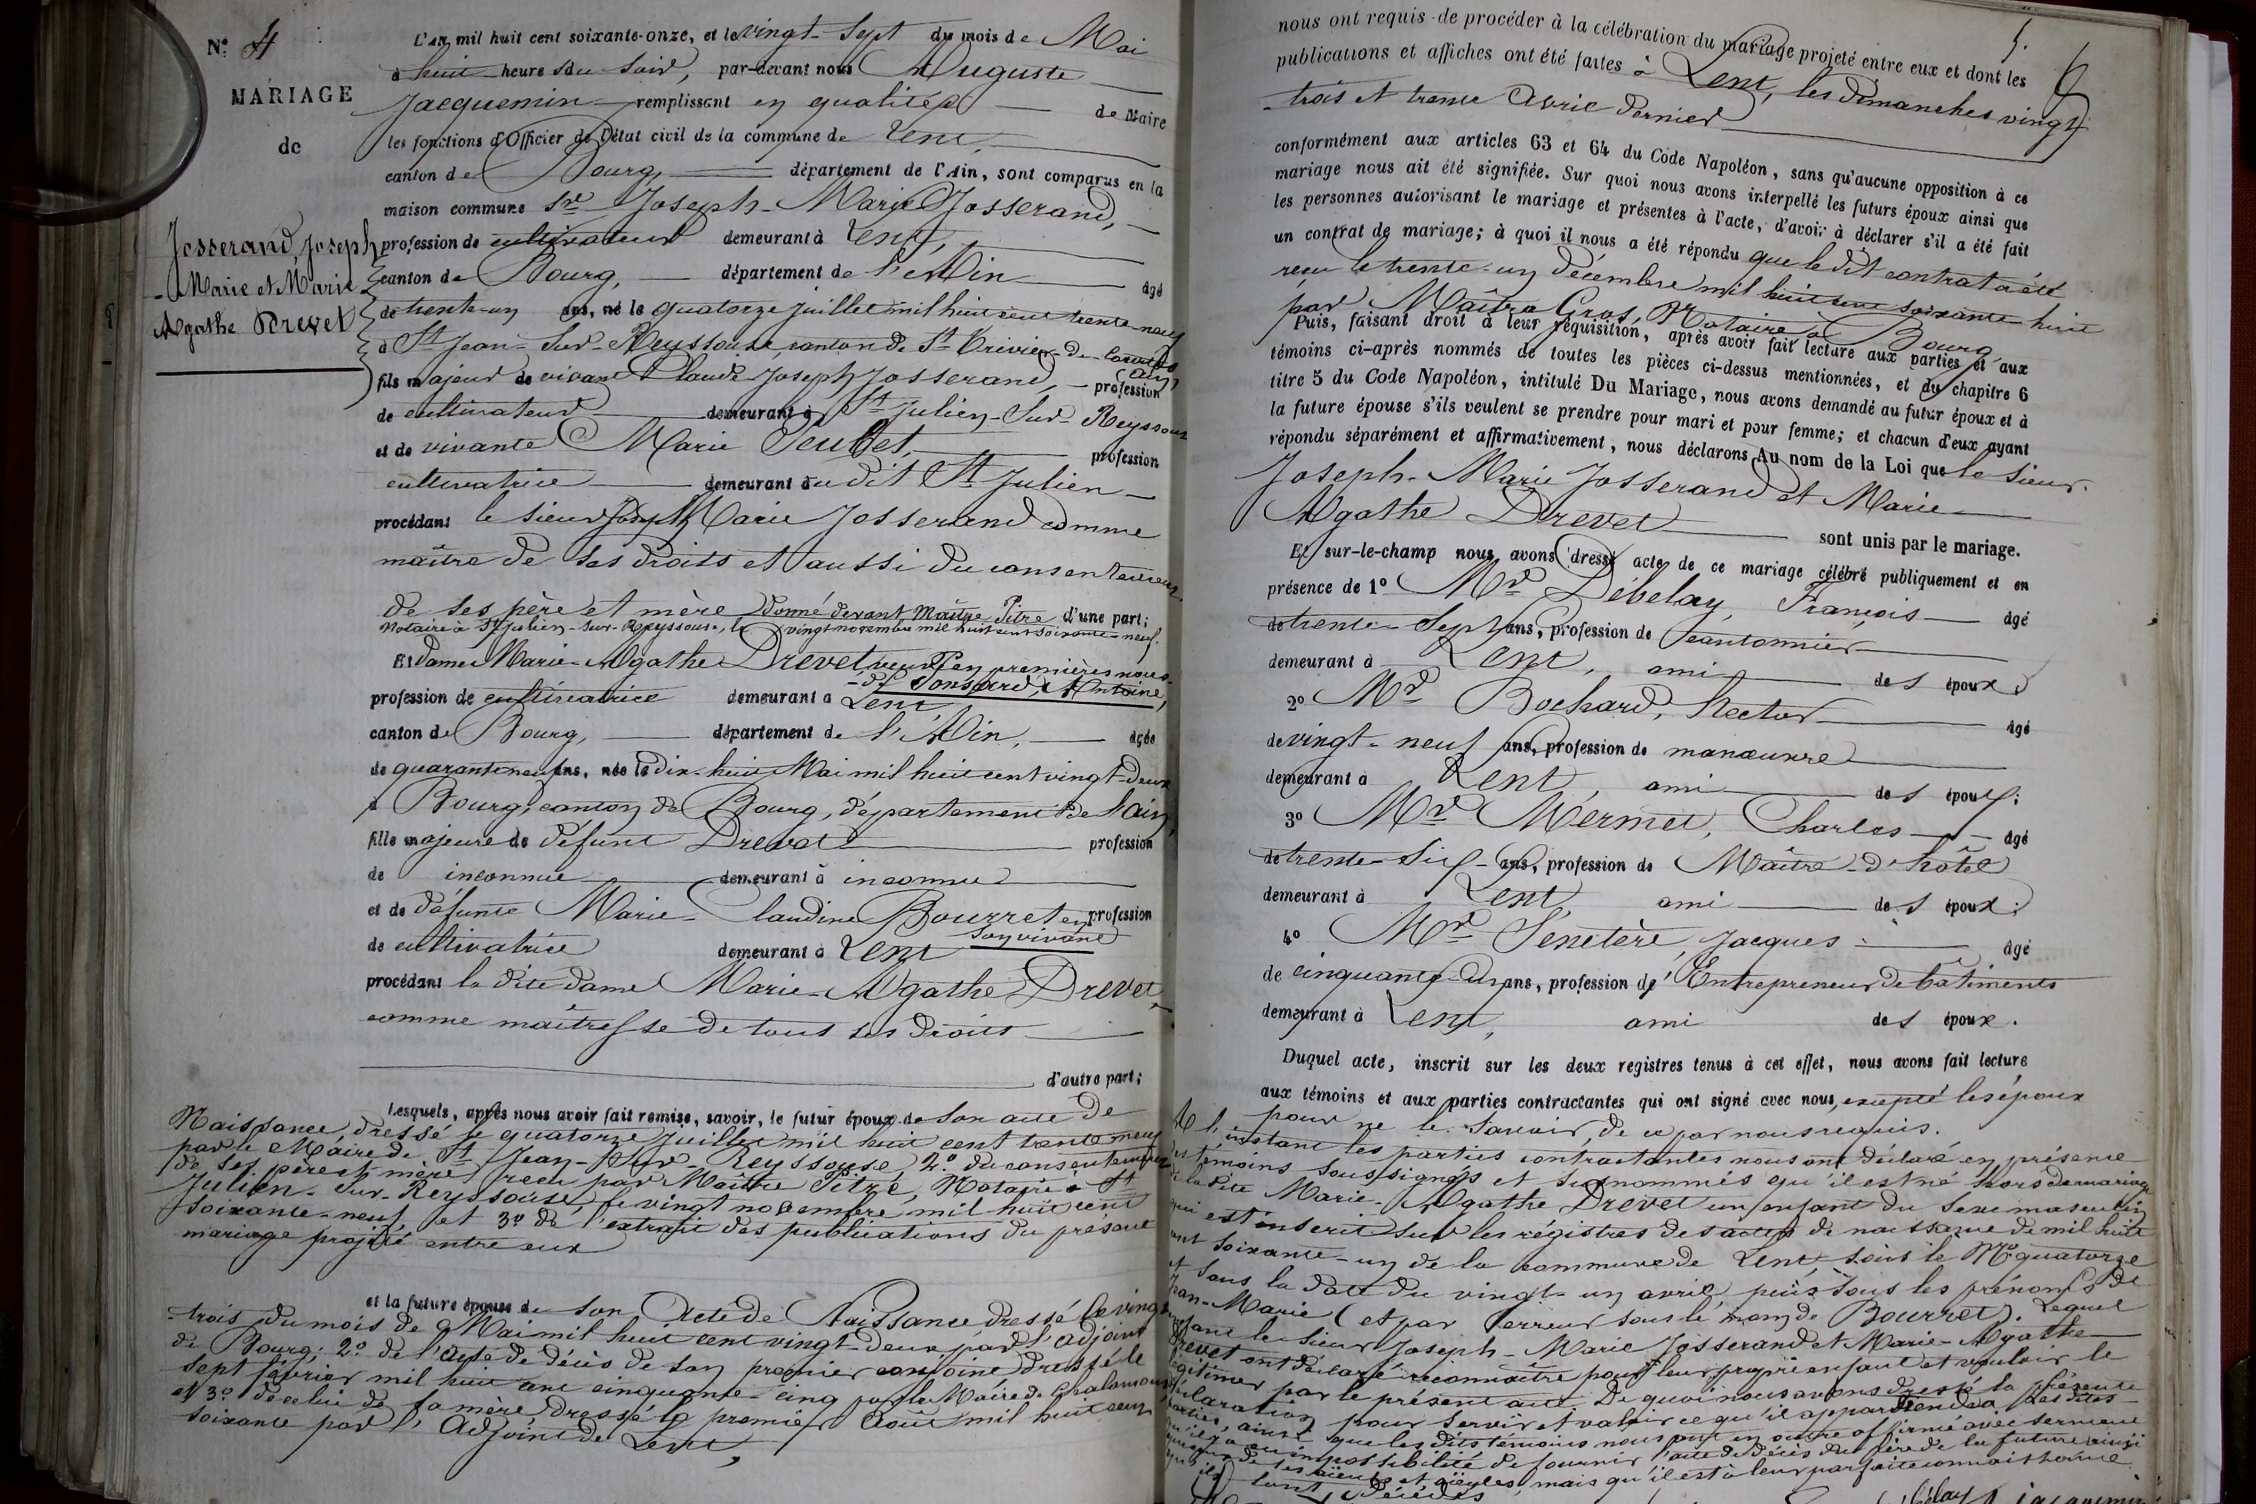 N.º 4
MARIAGE
de
Josserand, Joseph
- Marie et Marie
Agathe Drevet
L'an mil huit cent soixante-onze, et le vingt-sept du mois de Mai
à huit heures du soir, par-devant nous Auguste
Jacquemin remplissant en qualité de Maire
les fonctions d'Officier de l'état civil de la commune de Lent,
canton de Bourg, département de l'Ain, sont comparus en la
maison commune Sr Joseph-Marie Josserand,
profession de cultivateur demeurant à Lent,
canton de Bourg, département de l'Ain âgé
de trente-un ans, né le quatorze juillet mil huit cent trente-neuf
à St Jean-sur-Reyssouze, canton de St Trivier-de-Courtes
(Ain)
fils majeur de vivant Claude Joseph Josserand, profession
de cultivateur demeurant à St Julien-sur-Reyssouze
et de vivante Marie Peubet, profession
cultivatrice demeurant au dit St Julien
procédant le sieur Joseph Marie Josserand comme
maître de ses droits et aussi du consentement
de ses père et mère donné devant Maître Pitre d'une part;
Notaire à St Julien-sur-Reyssouse, le vingt novembre mil huit cent soixante-neuf.
Et dame Marie-Agathe Drevet, veuve en premières noces
de Ponsard, Antoine,
profession de cultivatrice demeurant à Lent
canton de Bourg, département de l'Ain, âgée
de quarante-neuf ans, née le dix-huit Mai mil huit cent vingt-deux
à Bourg, canton de Bourg, département de l'ain,
fille majeure de défunt Drevet profession
de inconnue demeurant à inconnu
et de défunte Marie-Claudine Bourret en profession
son vivant
de cultivatrice demeurant à Lent
procédant la dite dame Marie-Agathe Drevet
comme maîtresse de tous ses droits
d'autre part;
Lesquels, après nous avoir fait remise, savoir, le futur époux de son acte de
Naissance, dressé le quatorze juillet mil huit cent trente-neuf
par le Maire de St Jean-sur-Reyssouse, 2º du consentement
de ses père et mère reçu par Maître Pitre, Notaire à St
Julien-sur-Reyssouse, le vingt novembre mil huit cent
soixante-neuf, et 3º de l'extrait des publications du présent
mariage projeté entre eux
et la future épouse de son Acte de Naissance dressé le vingt
-trois du mois de Mai mil huit cent vingt-deux par l'adjoint
de Bourg; 2º de l'acte de décès de son premier conjoint dressé le
sept février mil huit cent cinquante-cinq par le Maire de Chalamont
et 3º de celui de sa mère dressé le premier Août mil huit cent
soixante par l'Adjoint de Lent,
5.
nous ont requis de procéder à la célébration du mariage projeté entre eux et dont les
publications et affiches ont été faites à Lent, les dimanches vingt
-trois et trente avril dernier
conformément aux articles 63 et 64 du Code Napoléon, sans qu'aucune opposition à ce
mariage nous ait été signifiée. Sur quoi nous avons interpellé les futurs époux ainsi que
les personnes autorisant le mariage et présentes à l'acte, d'avoir à déclarer s'il a été fait
un contrat de mariage; à quoi il nous a été répondu que le dit contrat a été
reçu le trente-un décembre mil huit cent soixante-huit
par Maître Gros, Notaire à Bourg
Puis, faisant droit à leur réquisition, après avoir fait lecture aux parties et aux
témoins ci-après nommés de toutes les pièces ci-dessus mentionnées, et du chapitre 6
titre 5 du Code Napoléon, intitulé Du Mariage, nous avons demandé au futur époux et à
la future épouse s'ils veulent se prendre pour mari et pour femme; et chacun d'eux ayant
répondu séparément et affirmativement, nous déclarons Au nom de la Loi que le sieur
Joseph-Marie Josserand et Marie
Agathe Drevet sont unis par le mariage.
Et sur-le-champ nous avons dressé acte de ce mariage célébré publiquement et en
présence de 1º Mr Débelay, François âgé
de trente-sept ans, profession de cantonnier
demeurant à Lent, ami des époux
2º Mr Bochard, Hector âgé
de vingt-neuf ans, profession de manœuvre
demeurant à Lent, ami des époux;
3º Mr Mermet, Charles âgé
de trente-six ans, profession de Maître-d'hôtel
demeurant à Lent, ami des époux;
4º Mr Senetère, Jacques âgé
de cinquante-un ans, profession d'Entrepreneur de bâtiments
demeurant à Lent, ami des époux.
Duquel acte, inscrit sur les deux registres tenus à cet effet, nous avons fait lecture
aux témoins et aux parties contractantes qui ont signé avec nous, excepté les époux
pour ne le savoir, de ce par nous requis.
A l'instant les parties contractantes nous ont déclaré en présence
des témoins soussignés et susnommés qu'il est né hors de mariage
de la dite Marie-Agathe Drevet un enfant du sexe masculin
qui est inscrit sur les régistres des actes de naissance de mil huit
cent soixante-un de la commune de Lent, sous le Nº quatorze
et sous la date du vingt-un avril, puis sous les prénoms de
Jean-Marie (et par erreur sous le nom de Bourret). Lequel
enfant le sieur Joseph-Marie Josserand et Marie-Agathe
Drevet ont déclaré reconnaître pour leur propre enfant et vouloir le
légitimer par le présent acte. De quoi nous avons dressé la présente
déclaration pour servir et valoir ce qu'il appartiendra. Les dites
parties, ainsi que les dits témoins nous ont en outre affirmé avec serment
qu'il y a eu impossibilité de fournir l'acte de décès du père de la future ainsi
que ceux de ses aïeuls et aïeules, mais qu'il est à leur parfaite connaissance
qu'ils sont décédés